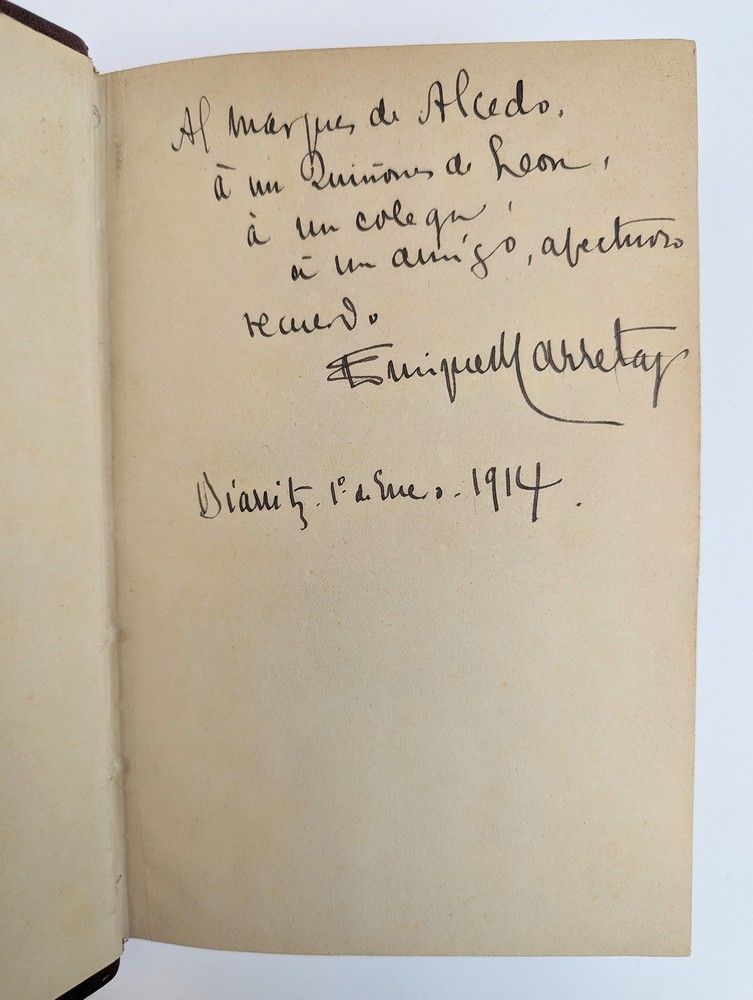 Al marques de Alcedo,
à un Quiñones de Leon,
à un colega,
à un amigo, afectuoso
recuerdo
Enrique Larreta
Biarritz. 1º de Enero. 1914.